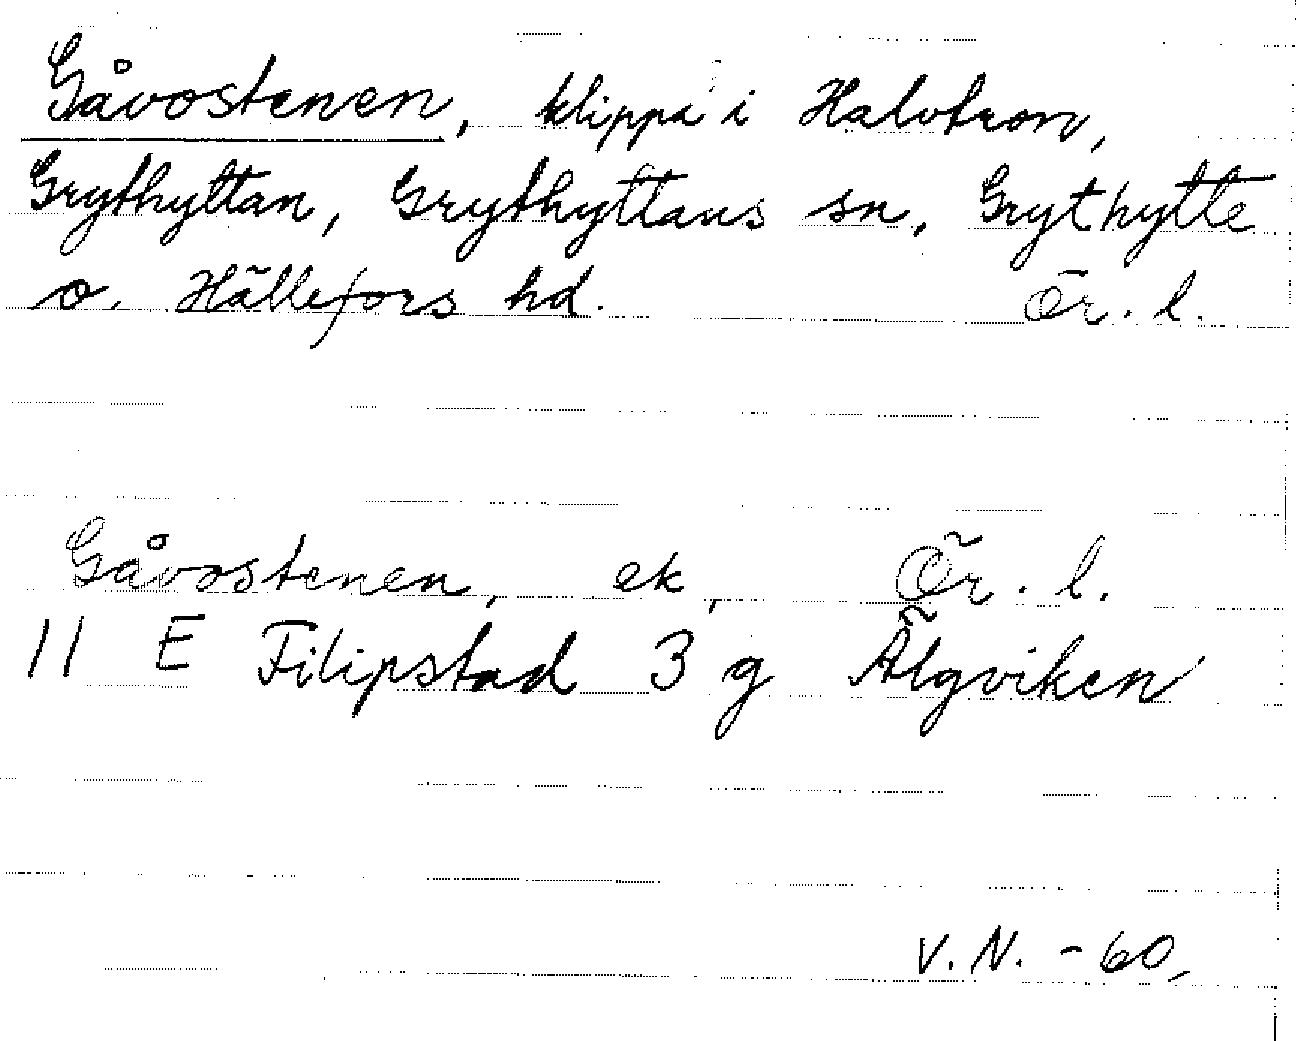 Gåvostenen, klippa i Halvtron,
Grythyttan, Grythyttans sn, Grythytte
o. Hällefors hd. Ör. l.
Gåvostenen, ek, Ör. l.
11 E Filipstad 3 g Älgviken
V. N. - 60,